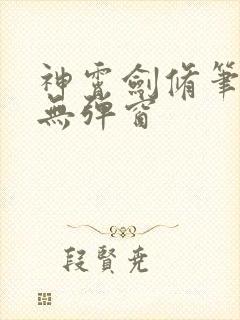 神霄劍脩筆
無彈窗
段賢堯